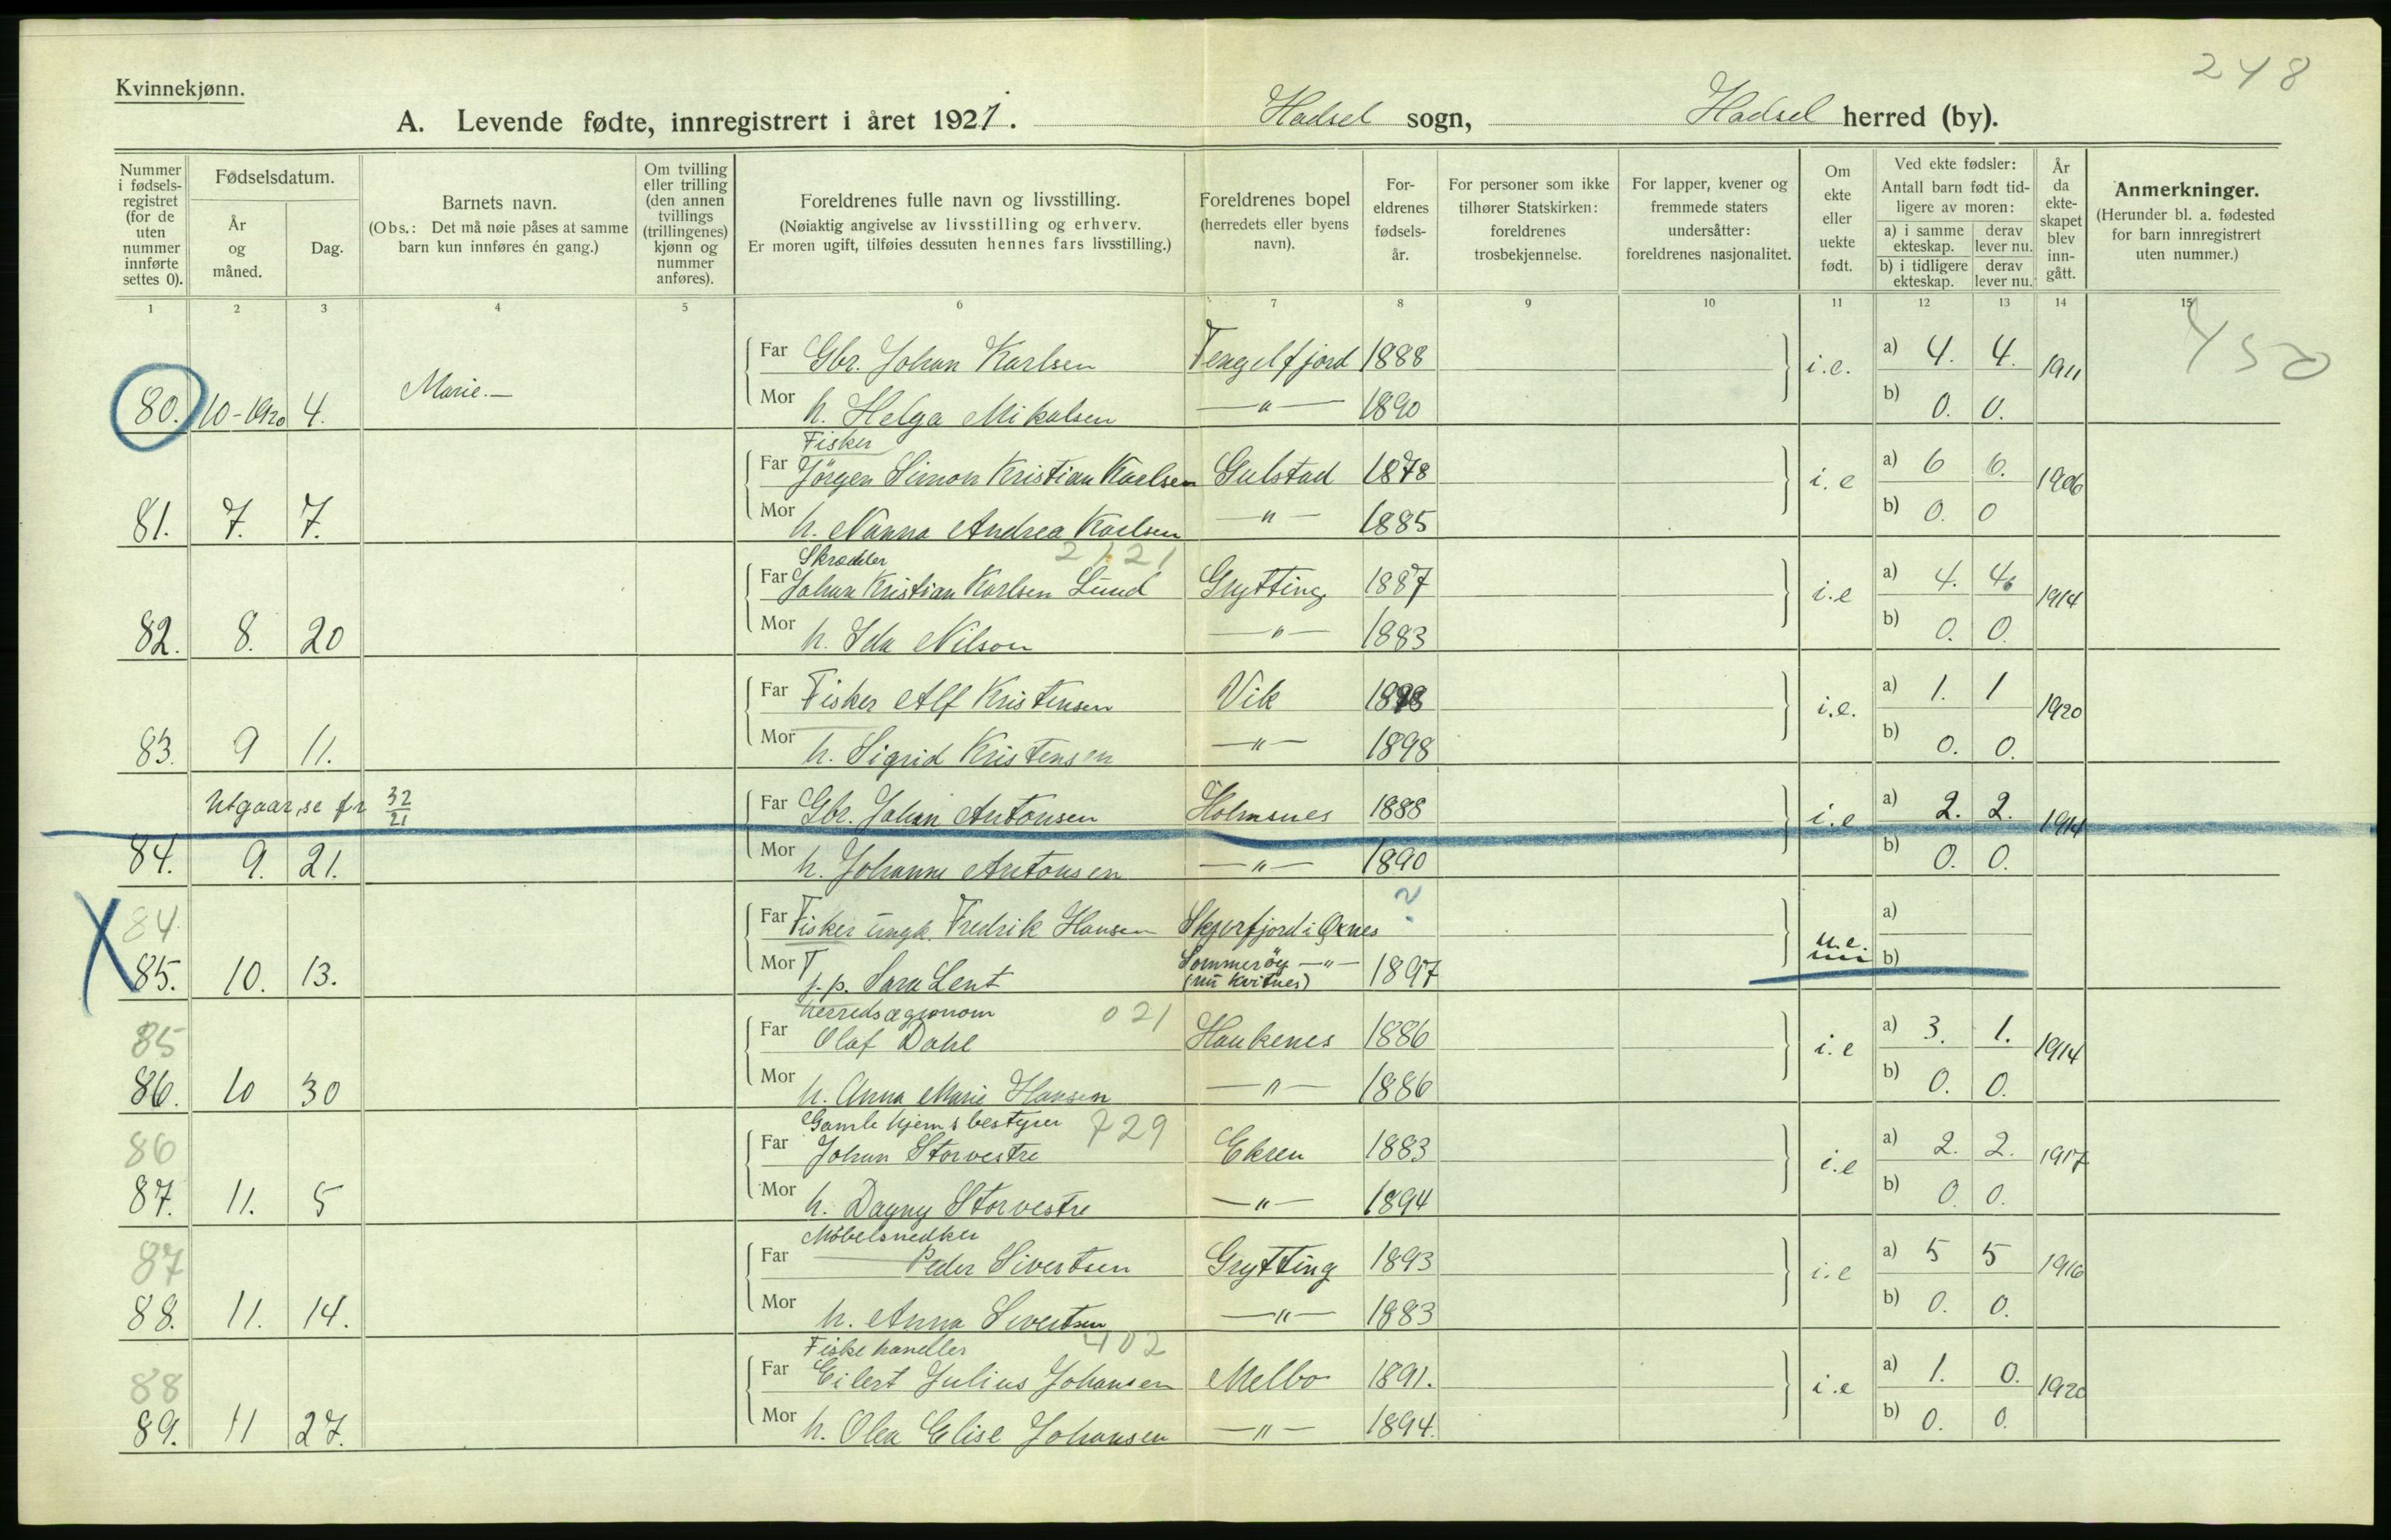 248
Kvinnekjønn.
A. Levende fødte, innregistrert i året 1921. Hadsel sogn, Hadsel herred (by).
Nummer i fødsels-registret (for de uten nummer innførte settes 0).
Fødselsdatum.
År og måned.
Dag.
Barnets navn.
(Obs.: Det må nøie påses at samme barn kun innføres én gang.)
Om tvilling eller trilling (den annen tvillings (trillingenes) kjønn og nummer anføres).
Foreldrenes fulle navn og livsstilling.
(Nøiaktig angivelse av livsstilling og erhverv.
Er moren ugift, tilføies dessuten hennes fars livsstilling.)
Foreldrenes bopel (herredets eller byens navn).
For-eldrenes fødsels-år.
For personer som ikke tilhører Statskirken: foreldrenes trosbekjennelse.
For lapper, kvener og fremmede staters undersåtter: foreldrenes nasjonalitet.
Om ekte eller uekte født.
Ved ekte fødsler:
Antall barn født tid-ligere av moren:
a) i samme ekteskap. derav lever nu.
b) i tidligere ekteskap. derav lever nu.
År da ekte-skapet blev inn-gått.
Anmerkninger.
(Herunder bl. a. fødested for barn innregistrert uten nummer.)
1 2 3 4 5 6 7 8 9 10 11 12 13 14 15
450
Far Gbr. Johan Karlsen Tengelfjord 1888 i.e. a) 4. 4. 1911
80. 10-1920 4. Marie.— Mor h. Helga Mikalsen —"— 1890 b) 0. 0.
Fisker
Far Jörgen Simon Kristian Karlsen Gulstad 1878 i.e a) 6 6. 1906
81. 7. 7. Mor h. Nanna Andrea Karlsen —"— 1885 b) 0. 0
Skrædder 2121
Far Johan Kristian Karlsen Lund Grytting 1887 i.e a) 4. 4. 1914
82. 8. 20 Mor h. Ida Nilson —"— 1883 b) 0. 0.
Far Fisker Alf Kristensen Vik 1898 i.e. a) 1. 1 1920
83. 9 11. Mor h. Sigrid Kristensen —"— 1898 b) 0. 0.
Utgaar, se fr 32/21 Far Gbr. Johan Antonsen Holmsnes 1888 i.e a) 2. 2. 1914
84. 9. 21. Mor h. Johanne Antonsen —"— 1890 b) 0. 0.
84 Far Fisker ungk. Fredrik Hansen Skjerfjord i Øxnes ? u.e. a)
X 85. 10. 13. Mor T p.p. Sara Lent Sommerøy —"— (nu Kvitnes) 1897 b)
Herredsagronom 021
85 Far Olaf Dahl Haukenes 1886 i.e a) 3. 1. 1914
86. 10 30 Mor h. Anna Marie Hansen —"— 1886 b) 0. 0.
Gamlehjemsbestyrer 729
86 Far Johan Storvestre Ekren 1883 i.e a) 2. 2. 1917
87. 11. 5 Mor h. Dagny Storvestre —"— 1894 b) 0. 0.
Möbelsnedker
87 Far Peder Sivertsen Grytting 1893 i.e a) 5 5 1916
88. 11. 14. Mor h. Anna Sivertsen —"— 1883 b) 0. 0.
Fiskehandler 402
88 Far Eilert Julius Johansen Melbo 1891. i.e a) 1. 0. 1920
89. 11 27. Mor h. Olea Elise Johansen —"— 1894. b) 0. 0.